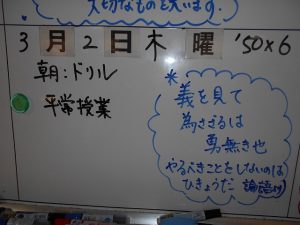 大切なものを失います。
3月2日木曜 '50×6
朝:ドリル
平常授業
*義を見て
為さざるは
勇無き也
やるべきことをしないのは
ひきょうだ 論語より